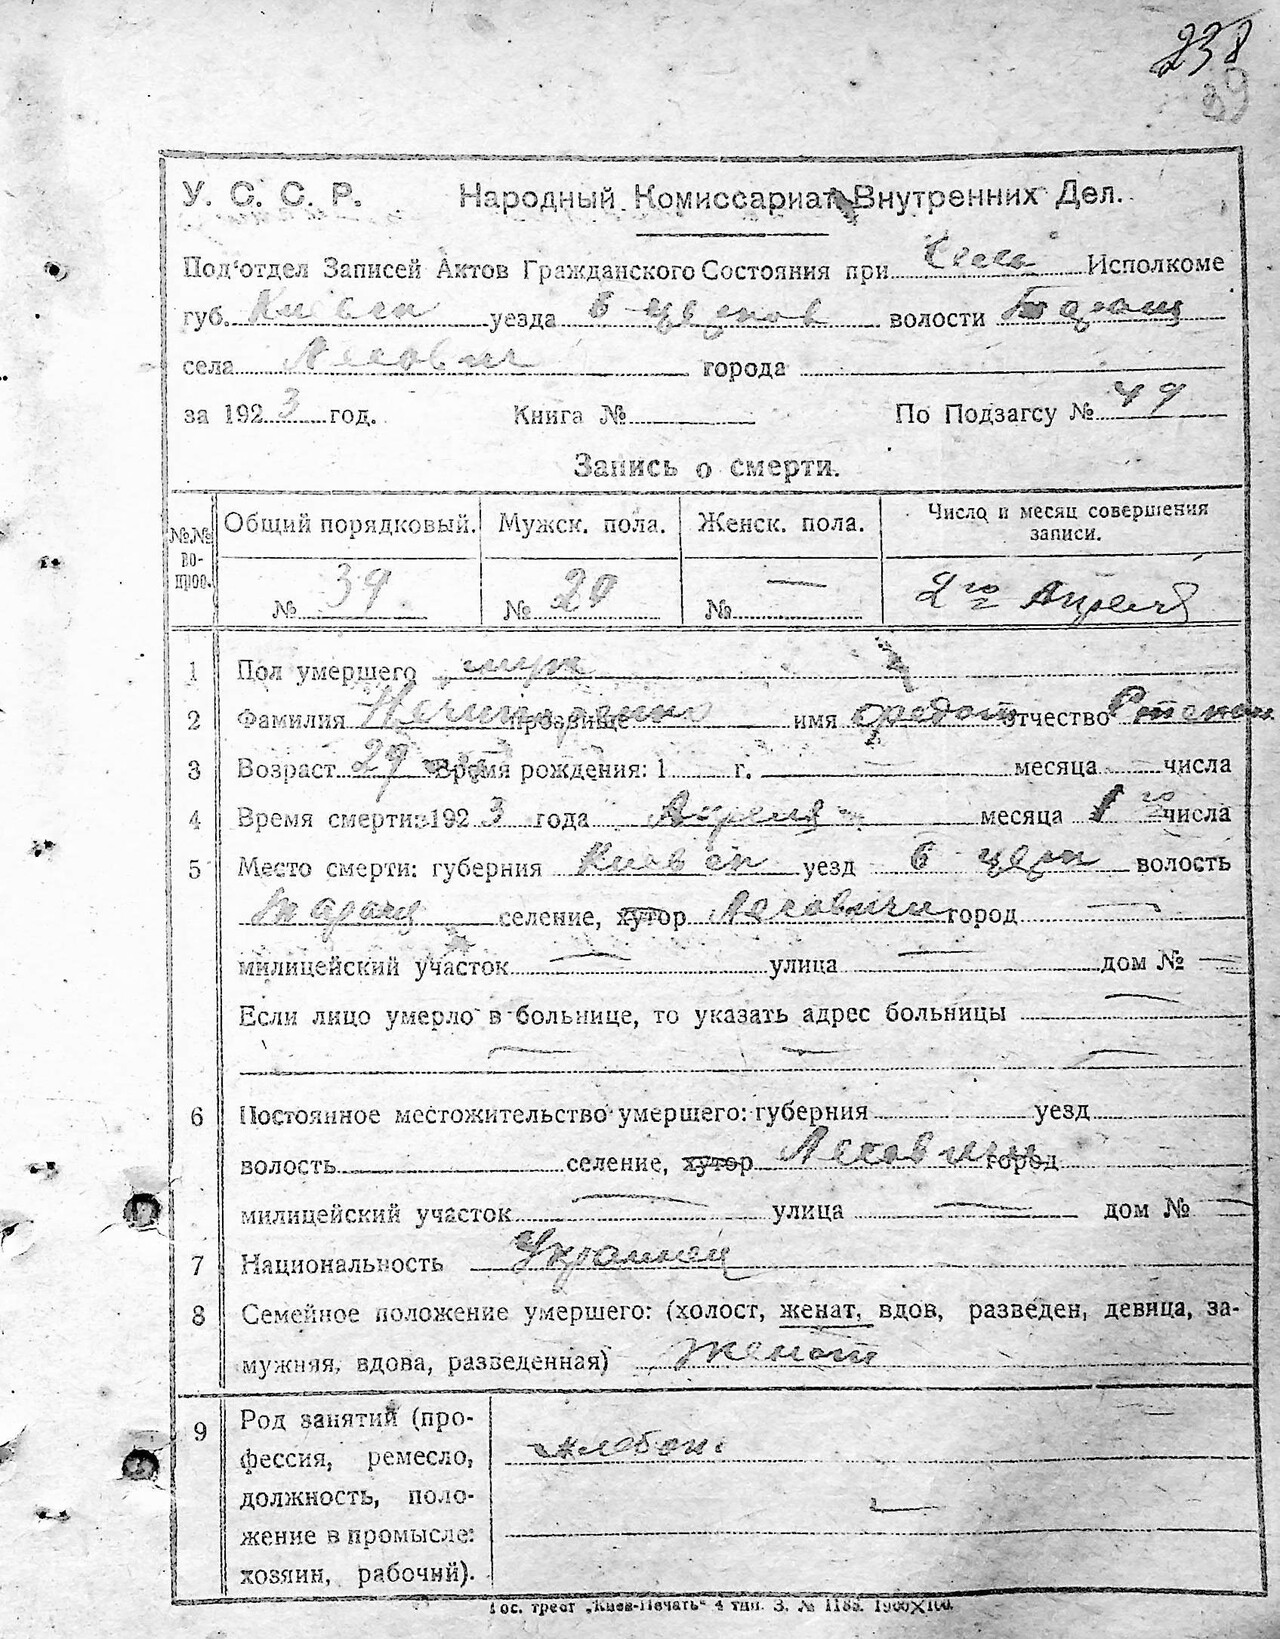 238
39
У. С. С. Р. Народный Комиссариат Внутренних Дел.
Под'отдел Записей Актов Гражданского Состояния при Исполкоме
губ. Киевск уезда б-церков волости Таращ
села Лескович города
за 1923 год. Книга № По Подзагсу № 49
Запись о смерти.
№№ вопров. Общий порядковый. Мужск. пола. Женск. пола. Число и месяц совершения записи.
№ 39 № 20 № — 2го Апреля
1 Пол умершего муж
2 Фамилия прозвище имя Федот отчество Степан
3 Возраст 29 Время рождения: 1 г. месяца числа
4 Время смерти: 1923 года Апреля месяца 1го числа
5 Место смерти: губерния Киевск уезд б-церк волость
Таращ селение, хутор Лесковичи город —
милицейский участок — улица — дом № —
Если лицо умерло в больнице, то указать адрес больницы —
— — —
6 Постоянное местожительство умершего: губерния уезд
волость селение, хутор Лесковичи город
милицейский участок — улица — дом № —
7 Национальность Украинец
8 Семейное положение умершего: (холост, женат, вдов, разведен, девица, за-
мужняя, вдова, разведенная) женат
9 Род занятий (про-
фессия, ремесло, хлебоп.
должность, поло-
жение в промысле: —
хозяин, рабочий).
Гос. трест „Киев-Печать“ 4 тип. З. № 1183. 1900Х100.